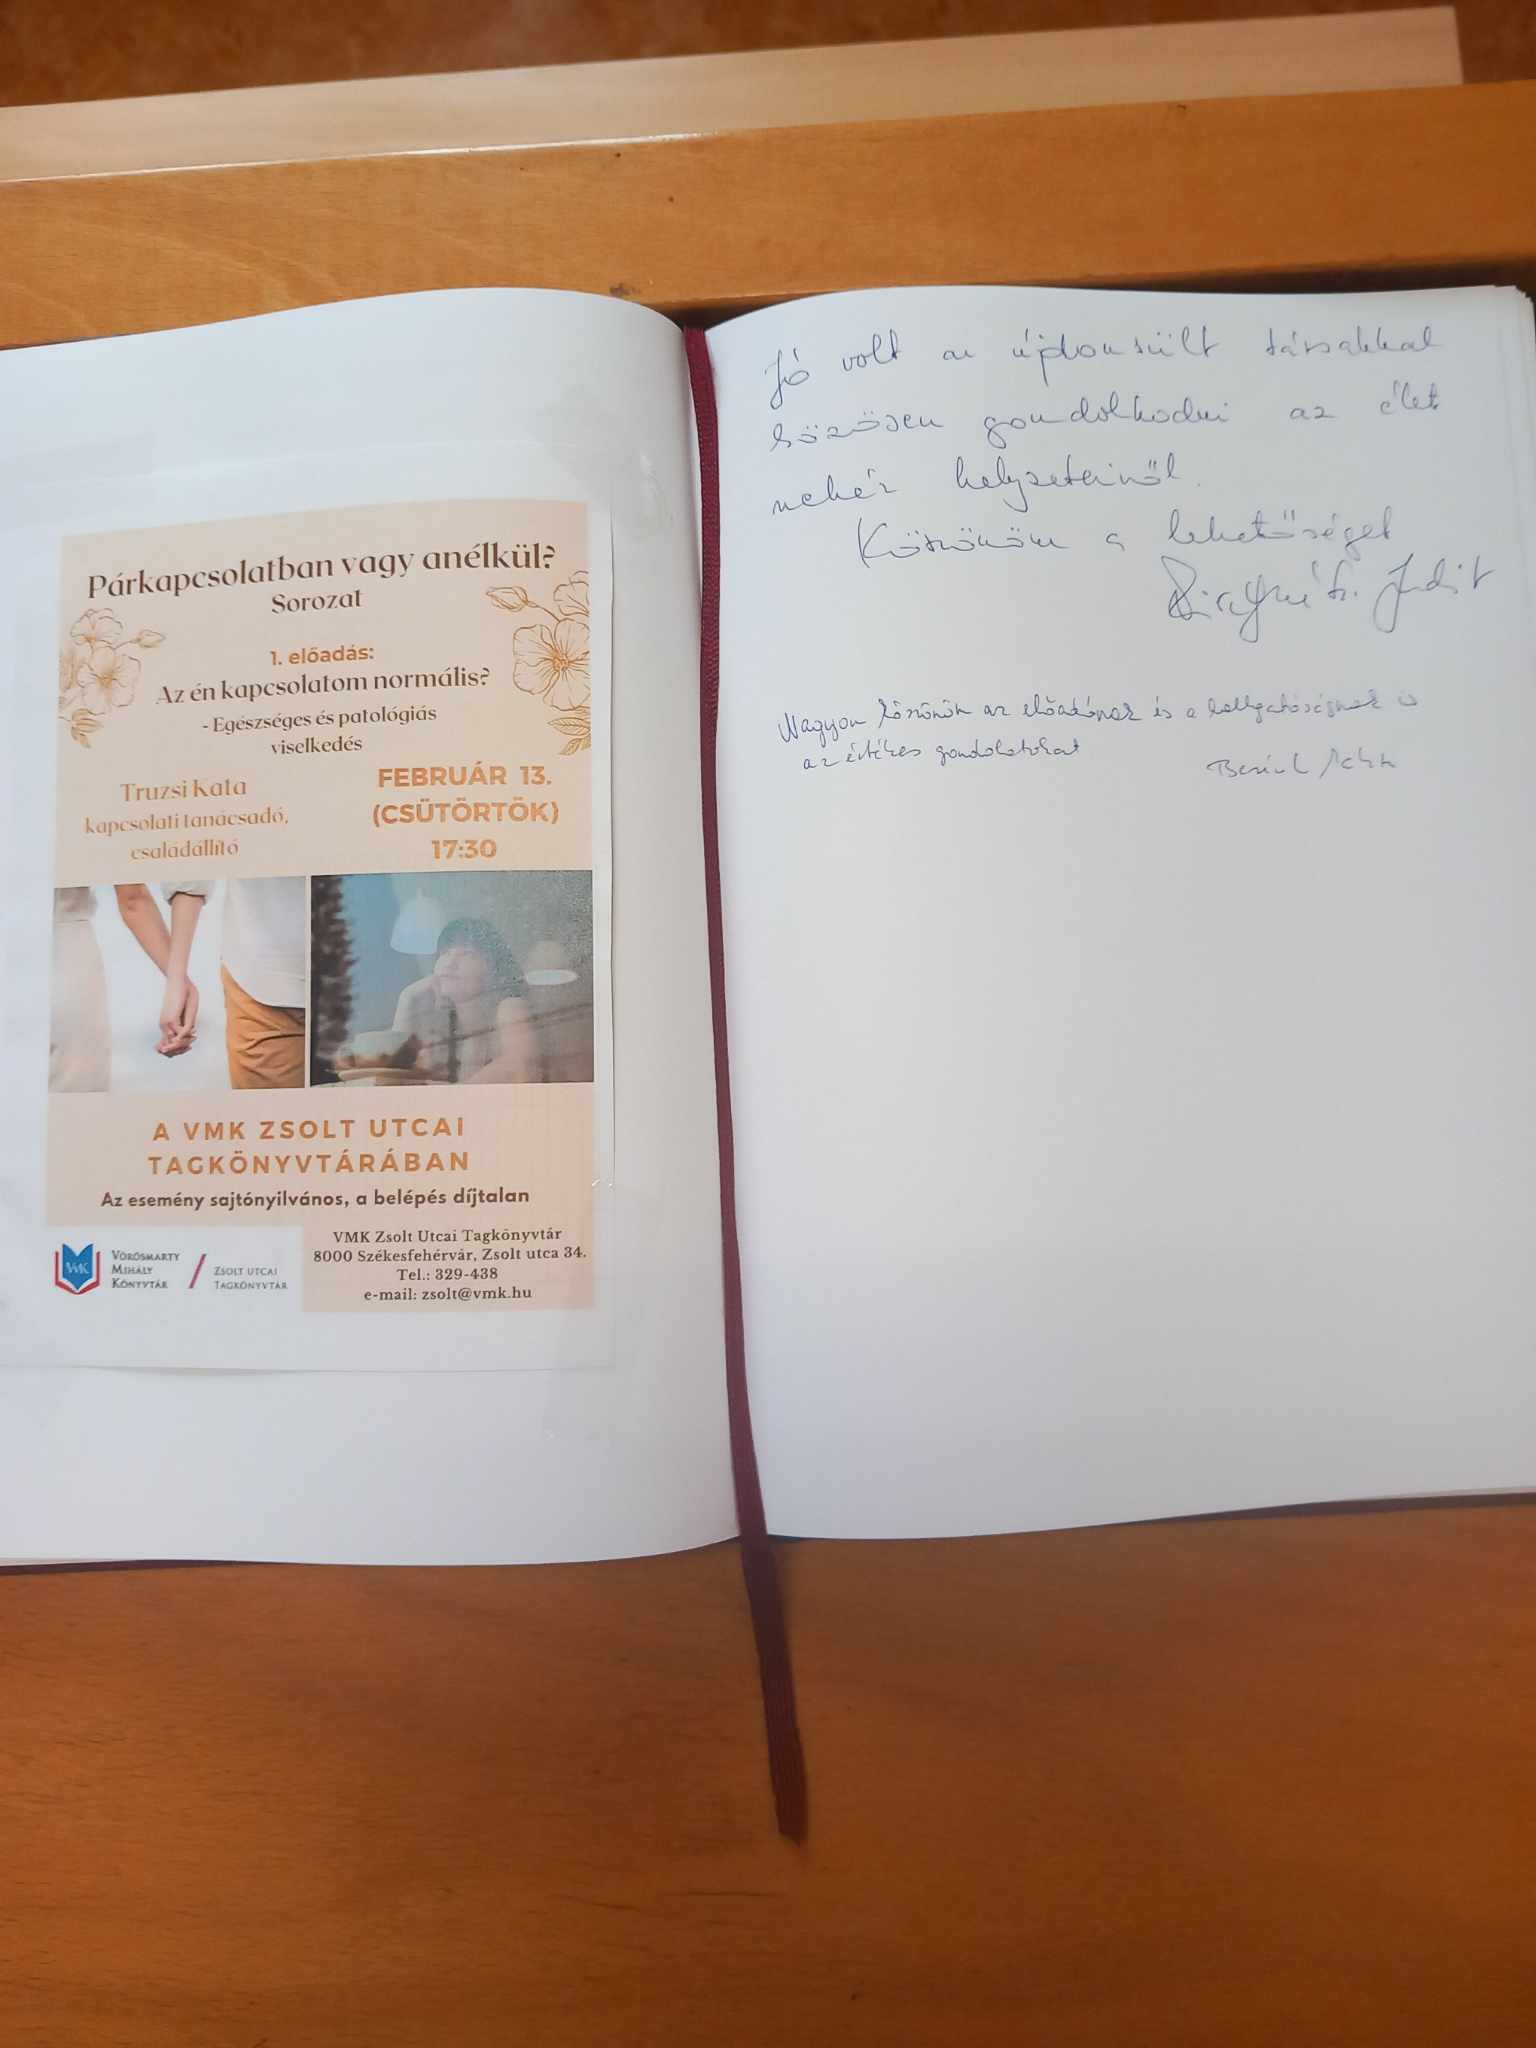 Párkapcsolatban vagy anélkül?
Sorozat
1. előadás:
Az én kapcsolatom normális?
- Egészséges és patológiás
viselkedés
Truzsi Kata
kapcsolati tanácsadó,
családállító
FEBRUÁR 13.
(CSÜTÖRTÖK)
17:30
A VMK ZSOLT UTCAI
TAGKÖNYVTÁRÁBAN
Az esemény sajtónyilvános, a belépés díjtalan
VMK
VÖRÖSMARTY
MIHÁLY
KÖNYVTÁR
ZSOLT UTCAI
TAGKÖNYVTÁR
VMK Zsolt Utcai Tagkönyvtár
8000 Székesfehérvár, Zsolt utca 34.
Tel.: 329-438
e-mail: zsolt@vmk.hu
Jó volt az újdonsült társakkal
közösen gondolkodni az élet
nehéz helyzeteiről.
Köszönöm a lehetőséget
Judit
Nagyon köszönöm az előadónak és a hallgatóságnak is
az értékes gondolatokat